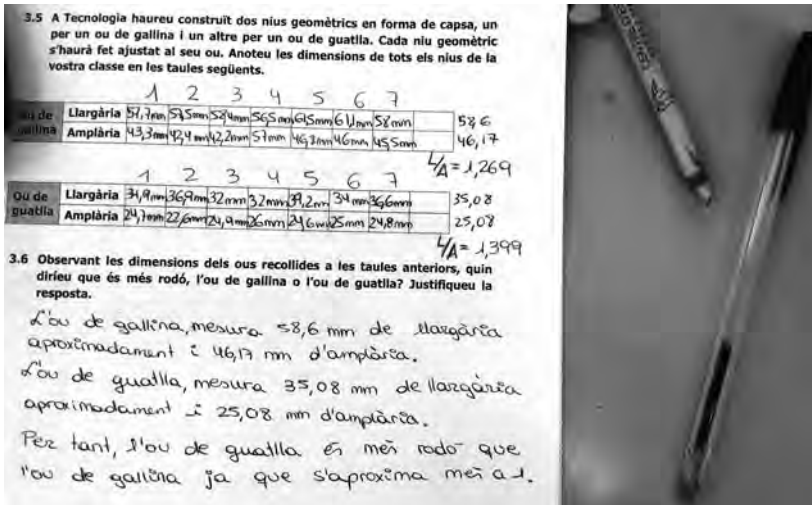 3.5 A Tecnologia haureu construït dos nius geomètrics en forma de capsa, un
per un ou de gallina i un altre per un ou de guatlla. Cada niu geomètric
s'haurà fet ajustat al seu ou. Anoteu les dimensions de tots els nius de la
vostra classe en les taules següents.
1 2 3 4 5 6 7
Ou de gallina
Llargària 57,7mm 57,5mm 58,4mm 56,5mm 61,5mm 61,1mm 58mm 58,6
Amplària 43,3mm 42,4mm 42,2mm 57mm 46,8mm 46mm 45,5mm 46,17
L/A = 1,269
1 2 3 4 5 6 7
Ou de guatlla
Llargària 34,9mm 36,9mm 32mm 32mm 39,2mm 34mm 36,6mm 35,08
Amplària 24,7mm 22,6mm 24,9mm 26mm 24,6mm 25mm 24,8mm 25,08
L/A = 1,399
3.6 Observant les dimensions dels ous recollides a les taules anteriors, quin
diríeu que és més rodó, l'ou de gallina o l'ou de guatlla? Justifiqueu la
resposta.
L'ou de gallina, mesura 58,6 mm de llargària
aproximadament i 46,17 mm d'amplària.
L'ou de guatlla, mesura 35,08 mm de llargària
aproximadament i 25,08 mm d'amplària.
Per tant, l'ou de guatlla és més rodó que
l'ou de gallina ja que s'aproxima més a 1.